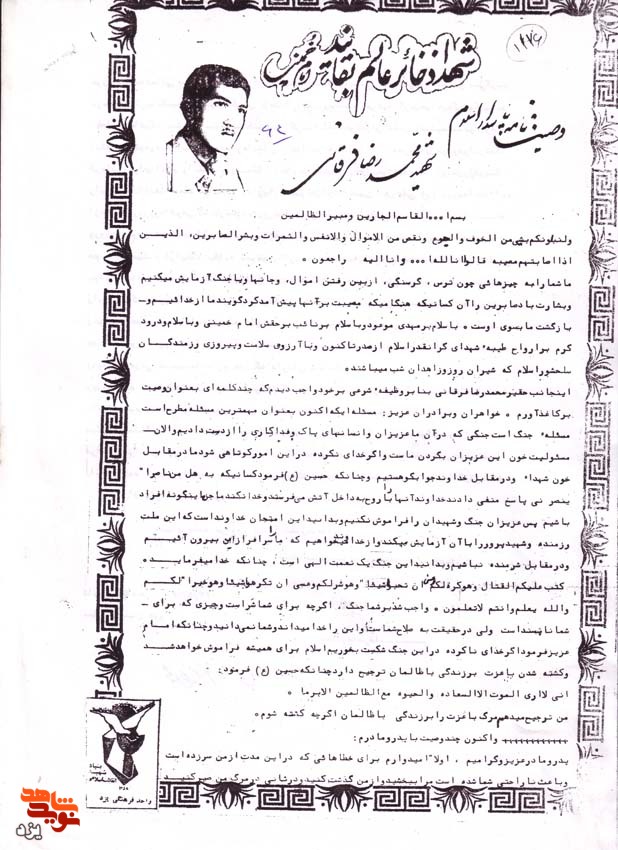 ۱۲۷۶
شهدا ذخائر عالم بقایند
امام خمینی
وصیت نامه پاسدار اسلام
شهید محمد رضا فرقانی
۹۴
بسم ا۰۰۰ القاسم الجبارین و مبیر الظالمین
ولنبلونکم بشی من الخوف والجوع و نقص من الاموال والانفس والثمرات وبشر الصابرین، الذیــن
اذا اصابتهم مصیبه قالوا انا لله ا۰۰۰ وانا الیه راجعون ۰
ما شما را به چیزهائی چون ترس، گرسنگی، ازبین رفتن اموال، وجانها وبا جنگ آزمایش میکنیم
وبشارت باد صابرین را آن کسانیکه هنگا میکه مصیبت برآنها پیش آمد کرد گویند ما از خدائیم و ــ
بازگشت ما بسوی اوست ۰ با سلام بر مهدی موعود وبا سلام بر نائب برحقش امام خمینی وبا سلام ودرود
گرم بر ارواح طیبهٔ شهدای گرانقدر اسلام ازصدر تاکنون وبا آرزوی سلامت وپیروزی رزمندگـــان
سلحشور اسلام که شیران روز وزاهدان شب میباشند ۰
اینجانب حقیر محمد رضا فرقانی بنا بر وظیفهٔ شرعی برخود واجب دیدم که چندکلمه ای بعنوان وصیت
برکاغذ آورم ۰ خواهران وبرادران عزیز: مسئله ایکه اکنون بعنوان مهمترین مسئله مطرح است
مسئلهٔ جنگ است جنگی که درآن ما عزیزان وانسانهای پاک وفداکاری را ازدست دادیم والان ــ
مسئولیت خون این عزیزان بگردن ماست واگر خدای نکرده دراین امور کوتاهی شود ما درمقابل
خون شهدا ودرمقابل خدا وند جوابگو هستیم وچنانکه حسین (ع) فرمود کسانیکه به هل من ناصرا"
ینصرنی پاسخ منفی دادند خدا وند آنها را با روح به داخل آتش می فرستد وخدا نکند ما جزء اینگونه افراد
باشیم پس عزیزان جنگ وشهیدان را فراموش نکنیم وبدانید این امتحان خدا ونداست که این ملت
رزمنده وشهید پرور را با آن آزمایش میکند وازخدا میخواهیم که ما را سرافراز ازاین بیرون آئیــم
ودرمقابل شرمنده نباشیم وبدانید این جنگ یک نعمت الهی است، چنانکه خدا میفرمایــد ۰
کتب علیکم القتال وهو کره لکم ان تحبوا شیئا" وهو شر لکم وعسی ان تکرهوا شیئا وهو خیرا" لکــم
والله یعلم وانتم لاتعلمون ۰ واجب شد بر شما جنگ، اگرچه برای شما شراست وچیزی که برای ــ
شما ناپسند است ولی درحقیقت به صلاح شماست واین را خدا میداند وشما نمی دانید وچنانکه امــام
عزیز فرمود اگر خدای ناکرده دراین جنگ شکست بخوریم اسلام برای همیشه فراموش خواهد شــد
وکشته شدن با عزت بر زندگی با ظالمان ترجیح دارد چنانکه حسین (ع) فرمود:
انی لااری الموت الا السعاده والحیوه مع الظالمین الابرما ۰
من ترجیح میدهم مرگ با عزت را بر زندگی با ظالمان اگرچه کشته شوم ۰
واکنون چند وصیت با پدر ومادرم:
پدر ومادر عزیز وگرامیم، اولا" امیدوارم برای خطاهائی که دراین مدت ازمن سرزده است
وباعث ناراحتی شما شده است مرا ببخشید وازمن گذشت کنید ودرثانی درمرگ من صبر کنیــد
بنیاد شهید انقلاب اسلامی
واحد فرهنگی یزد
نوید شاهد
یزد